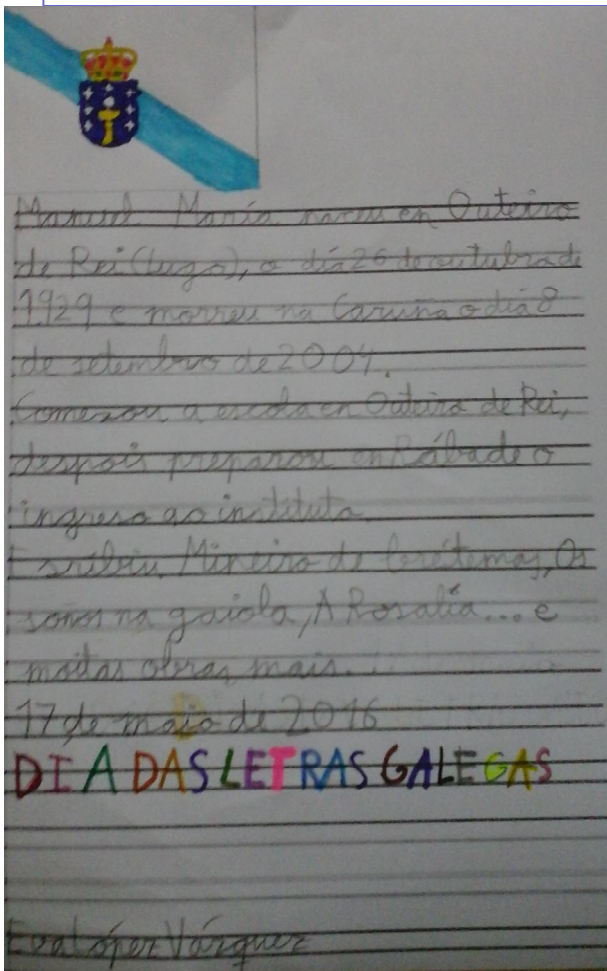 Manuel María naceu en Outeiro
de Rei (Lugo), o día 26 de outubro de
1929 e morreu na Coruña o día 8
de setembro de 2004.
Comezou a escola en Outeiro de Rei,
despois preparou en Rábade o
ingreso ao instituto.
Escribiu Mineiro de brétemas, Os
soños na gaiola, A Rosalía... e
moitas obras mais.
17 de maio de 2016
DIA DAS LETRAS GALEGAS
Eva López Vázquez